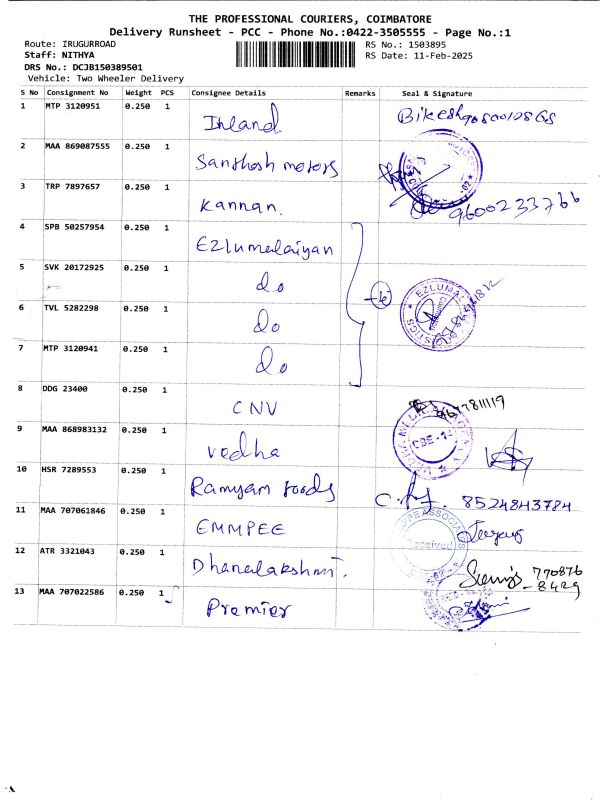 THE PROFESSIONAL COURIERS, COIMBATORE
Delivery Runsheet - PCC - Phone No.:0422-3505555 - Page No.:1
Route: IRUGURROAD RS No.: 1503895
Staff: NITHYA RS Date: 11-Feb-2025
DRS No.: DCJB150389501
Vehicle: Two Wheeler Delivery
S No Consignment No Weight PCS Consignee Details Remarks Seal & Signature
1 MTP 3120951 0.250 1 Inland
2 MAA 869087555 0.250 1 Santhosh motors
3 TRP 7897657 0.250 1 Kannan. 9600233766
4 SPB 50257954 0.250 1 Ezlumalaiyan
5 SVK 20172925 0.250 1 do
6 TVL 5282298 0.250 1 do
7 MTP 3120941 0.250 1 do
8 DDG 23400 0.250 1 CNV
9 MAA 868983132 0.250 1 Vedha
10 HSR 7289553 0.250 1 Ramyam foods 8524843784
11 MAA 707061846 0.250 1 EMMPEE
12 ATR 3321043 0.250 1 Dhanalakshmi. 770876
-8429
13 MAA 707022586 0.250 1 Premier